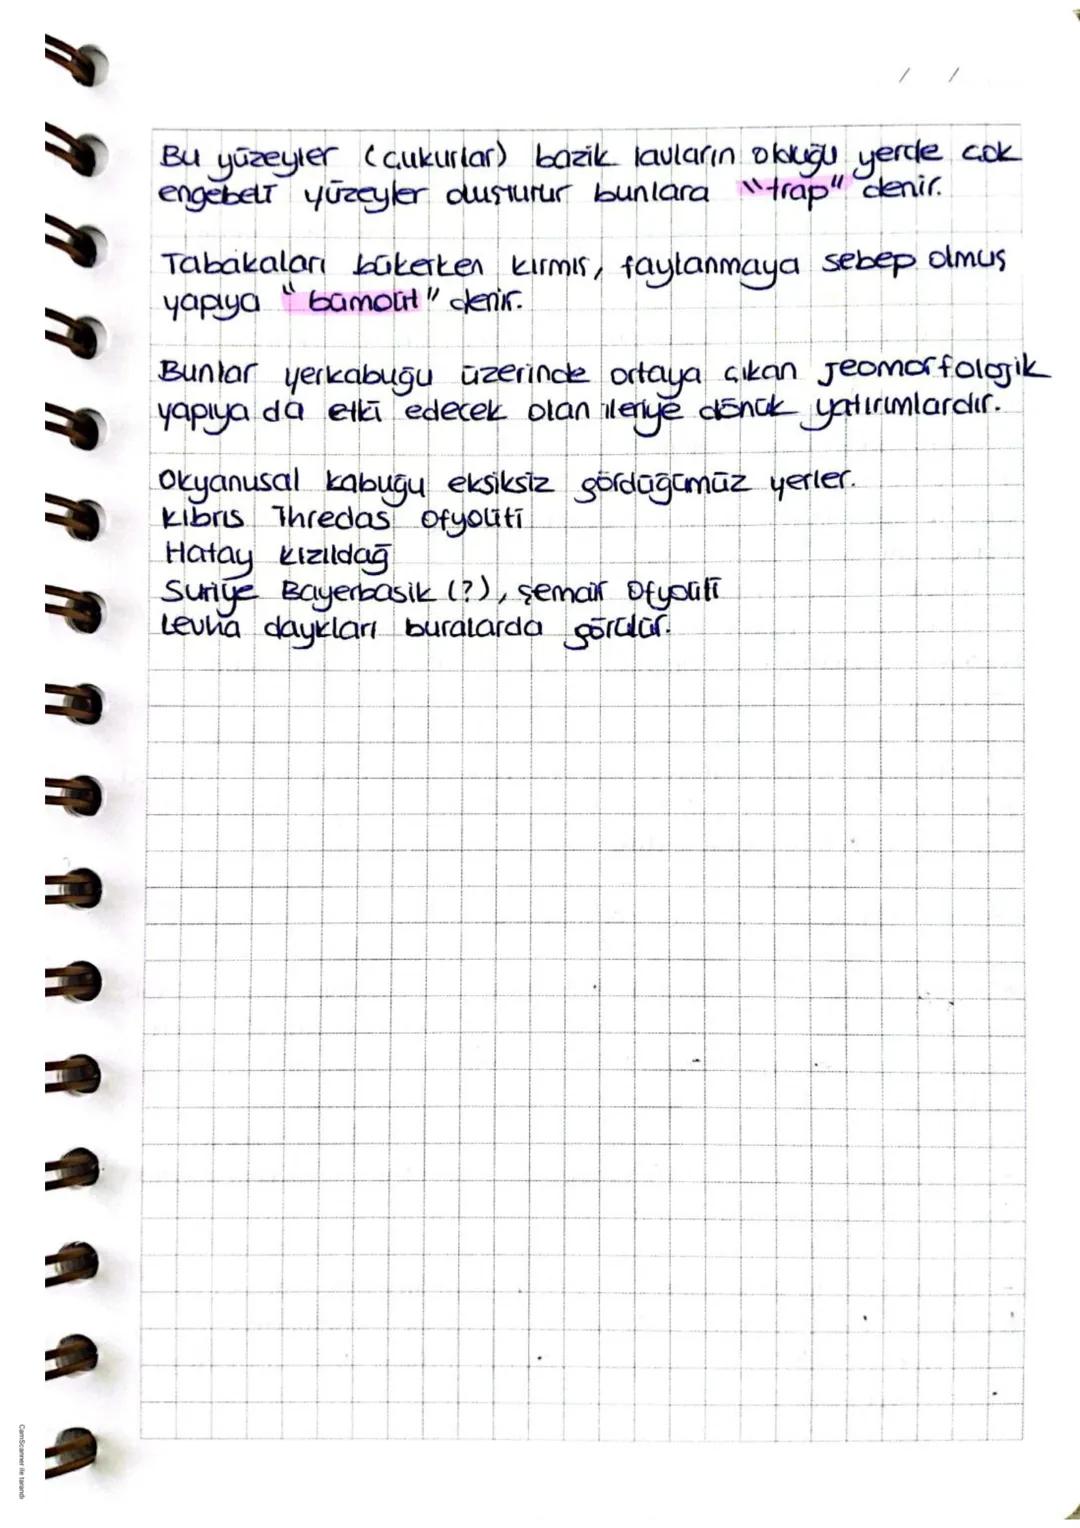 / /
Bu yüzeyler (çukurlar) bazik lavların olduğu yerde çok
engebeli yüzeyler oluşturur bunlara "trap" denir.
Tabakaları bükerken kırmış, faylanmaya sebep olmuş
yapıya "bümölit" denir.
Bunlar yerkabuğu üzerinde ortaya çıkan jeomorfologik
yapıya da etki edecek olan ileriye dönük yatırımlardır.
Okyanusal kabuğu eksiksiz gördüğümüz yerler.
Kıbrıs Thredas Ofyoliti
Hatay Kızıldağ
Suriye Bayerbasik (?), Şemair Ofyoliti
Levha daykları buralarda görülür.
CamScanner ile tarandı